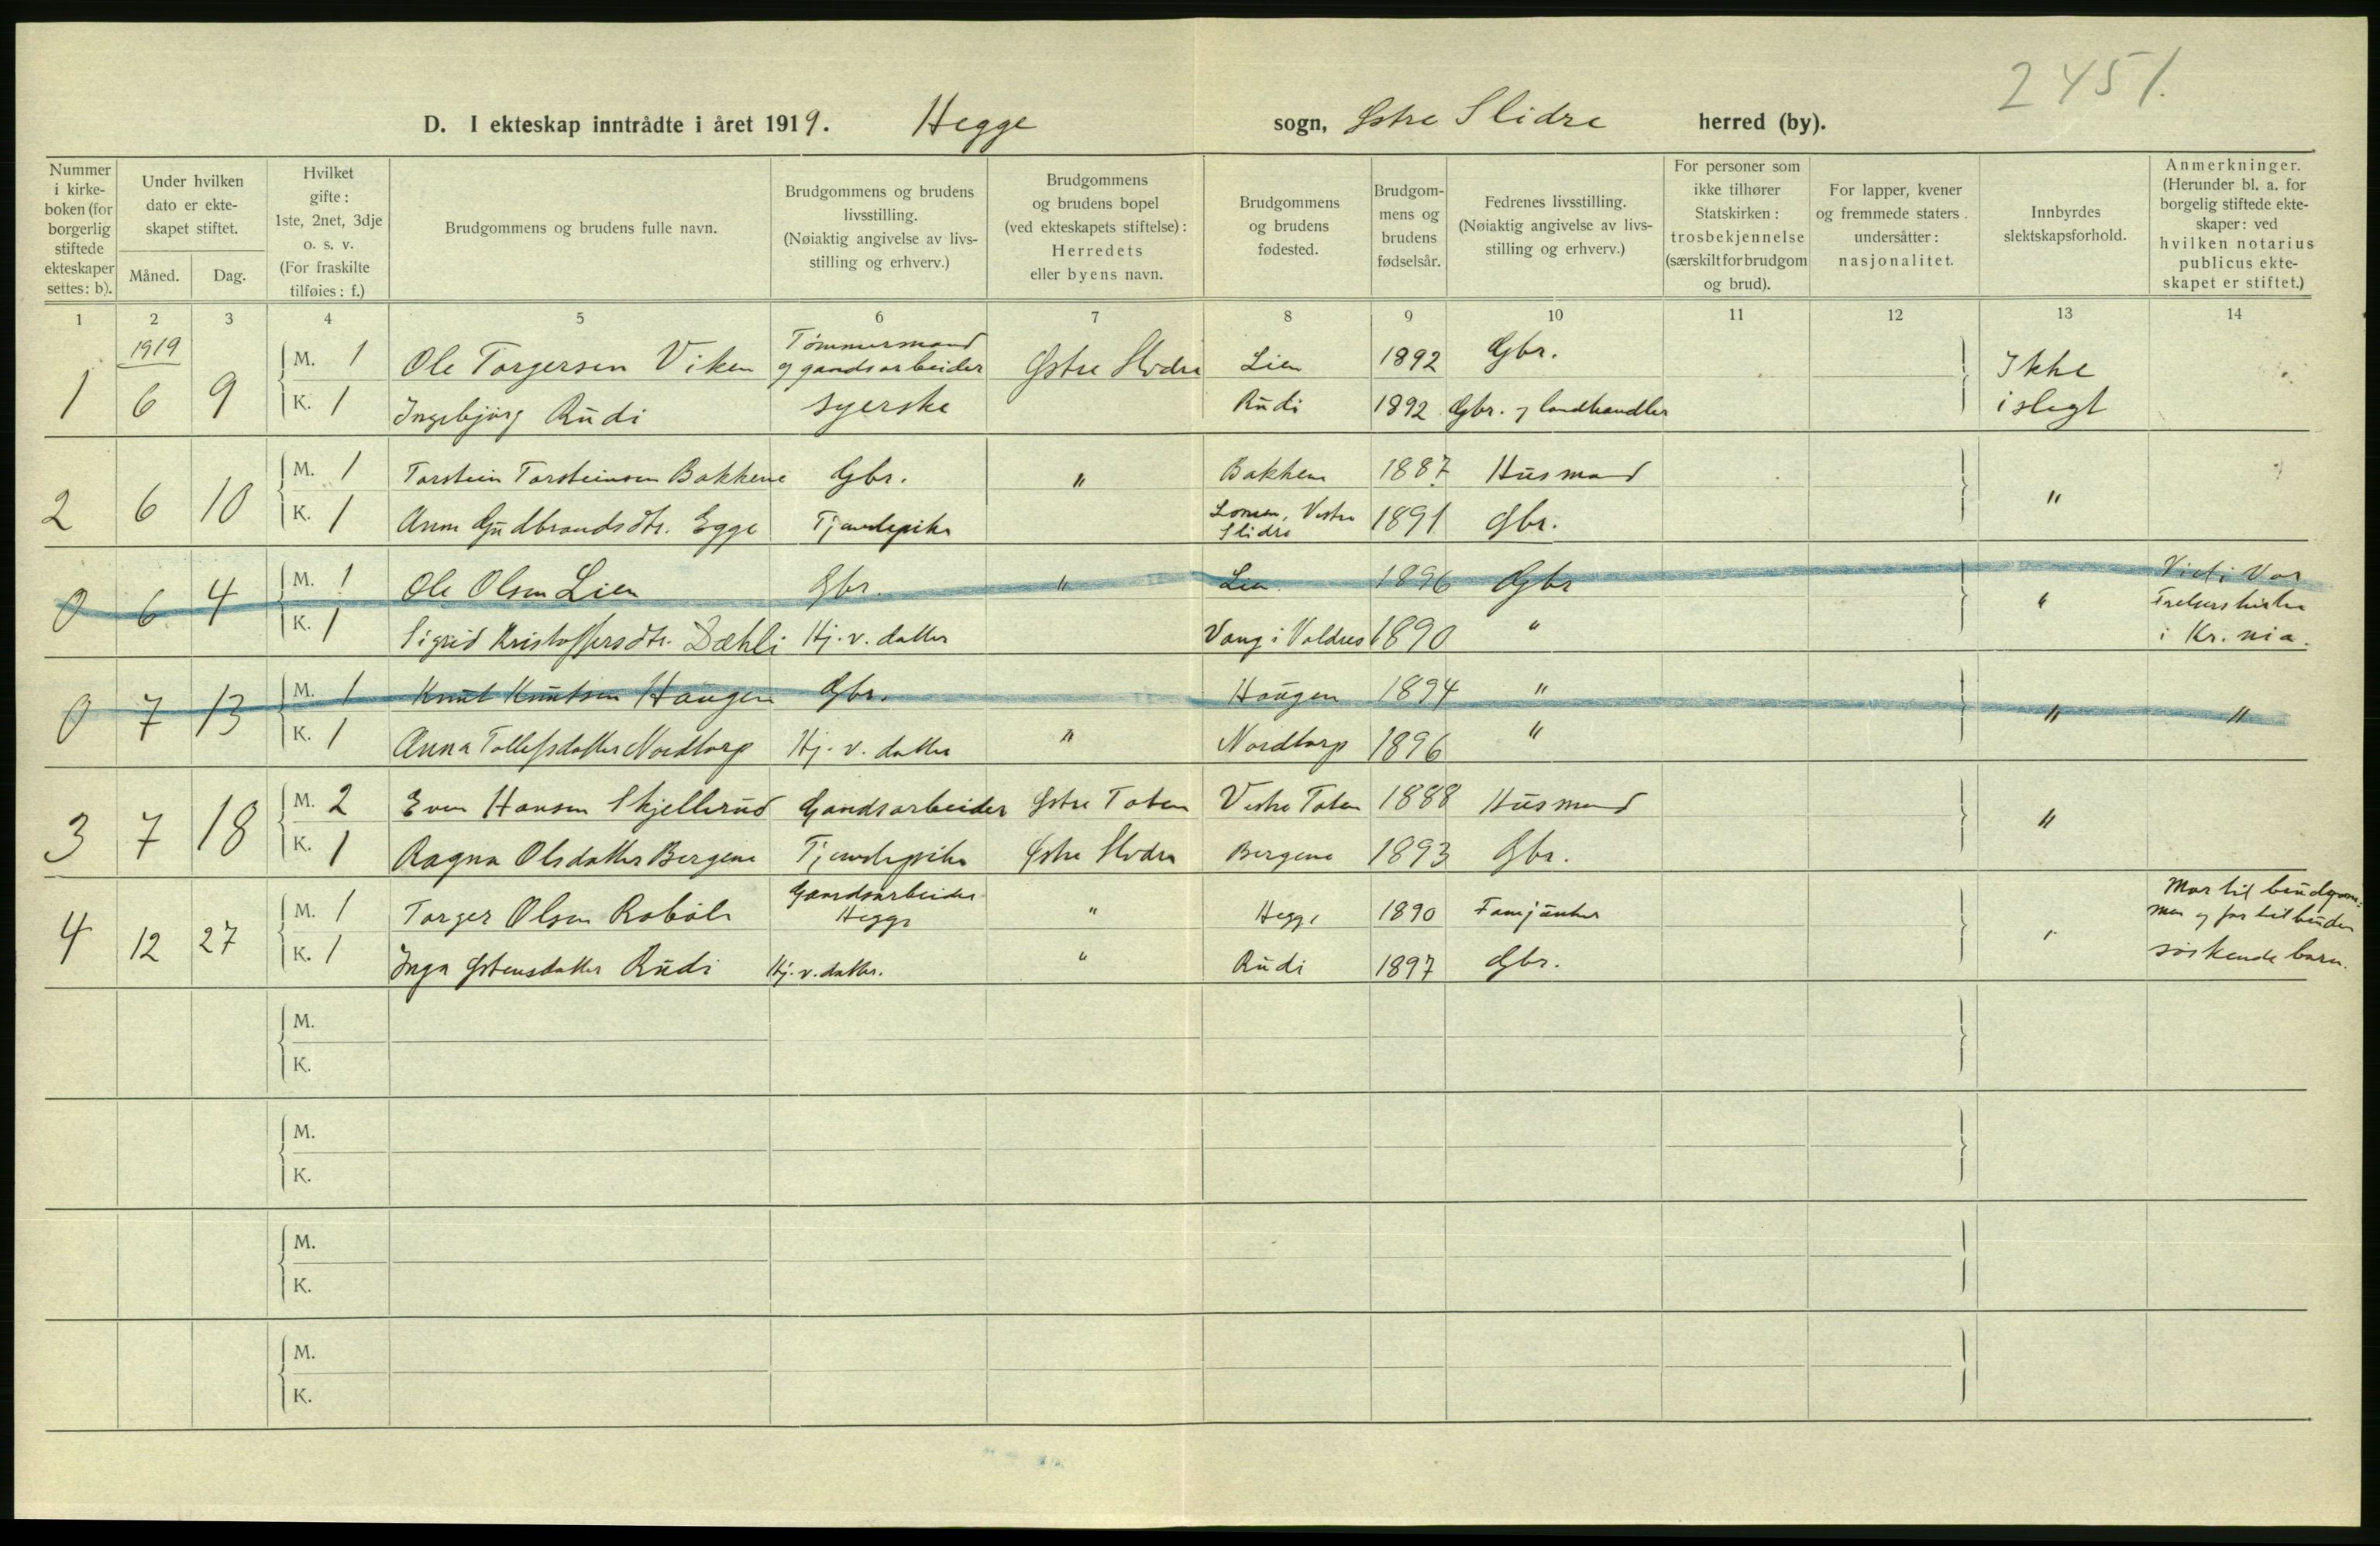 2451.
D. I ekteskap inntrådte i året 1919. Hegge sogn, Østre Slidre herred (by).
Nummer i kirke- boken (for borgerlig stiftede ekteskaper settes: b).
Under hvilken dato er ekte- skapet stiftet.
Måned. Dag.
Hvilket gifte: 1ste, 2net, 3dje o. s. v. (For fraskilte tilføies: f.)
Brudgommens og brudens fulle navn.
Brudgommens og brudens livsstilling. (Nøiaktig angivelse av livs- stilling og erhverv.)
Brudgommens og brudens bopel (ved ekteskapets stiftelse): Herredets eller byens navn.
Brudgommens og brudens fødested.
Brudgom- mens og brudens fødselsår.
Fedrenes livsstilling. (Nøiaktig angivelse av livs- stilling og erhverv.)
For personer som ikke tilhører Statskirken: trosbekjennelse (særskilt for brudgom og brud).
For lapper, kvener og fremmede staters undersåtter: nasjonalitet.
Innbyrdes slektskapsforhold.
Anmerkninger. (Herunder bl. a. for borgelig stiftede ekte- skaper: ved hvilken notarius publicus ekte- skapet er stiftet.)
1 2 3 4 5 6 7 8 9 10 11 12 13 14
1919
1 6 9 M. 1 Ole Torgersen Viken Tømmermand og gaardsarbeider Østre Slidre Lien 1892 Gbr. Ikke
K. 1 Ingebjørg Rudi syerske Rudi 1892 Gbr. og landhandler i slegt
2 6 10 M. 1 Torstein Torsteinsen Bakkene Gbr. " Bakken 1887 Husmand "
K. 1 Anne Gudbrandsdtr. Egge Tjenestepike Lomen, Vestre Slidre 1891 Gbr.
0 6 4 M. 1 Ole Olsen Lien Gbr. " Lien 1896 Gbr " Viet i Vor
K. 1 Sigrid Kristoffersdtr. Dæhli Hj. v. datter Vang i Valdres 1890 " Frelserskirke i Kr.nia.
0 7 13 M. 1 Knut Knutsen Haugen Gbr. Haugen 1894 " " "
K. 1 Anna Tollefsdatter Nordtorp Hj. v. datter " Nordtorp 1896 "
3 7 18 M. 2 Even Hansen Skjellerud Gaardsarbeider Østre Toten Vestre Toten 1888 Husmand "
K. 1 Ragna Olsdatter Bergene Tjenestepike Østre Slidre Bergene 1893 Gbr.
4 12 27 M. 1 Torger Olsen Robøle Gaardsarbeider Hegge " Hegge 1890 Fanejunker " Mor til brudgom- men og far til bruden
K. 1 Inga Østensdatter Rudi Hj. v. datter. " Rudi 1897 Gbr. søskende barn.
M.
K.
M.
K.
M.
K.
M.
K.